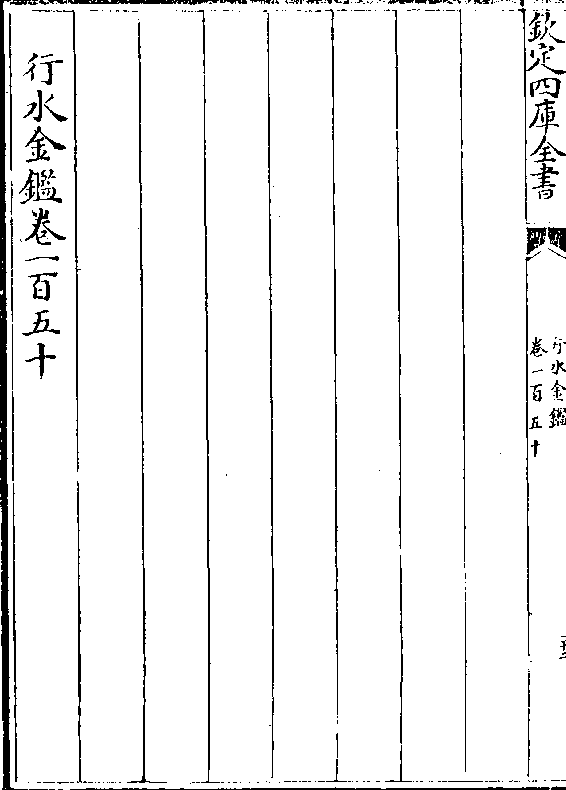 欽定四庫全書
行水金鑑
卷一百五十
行水金鑑卷一百五十